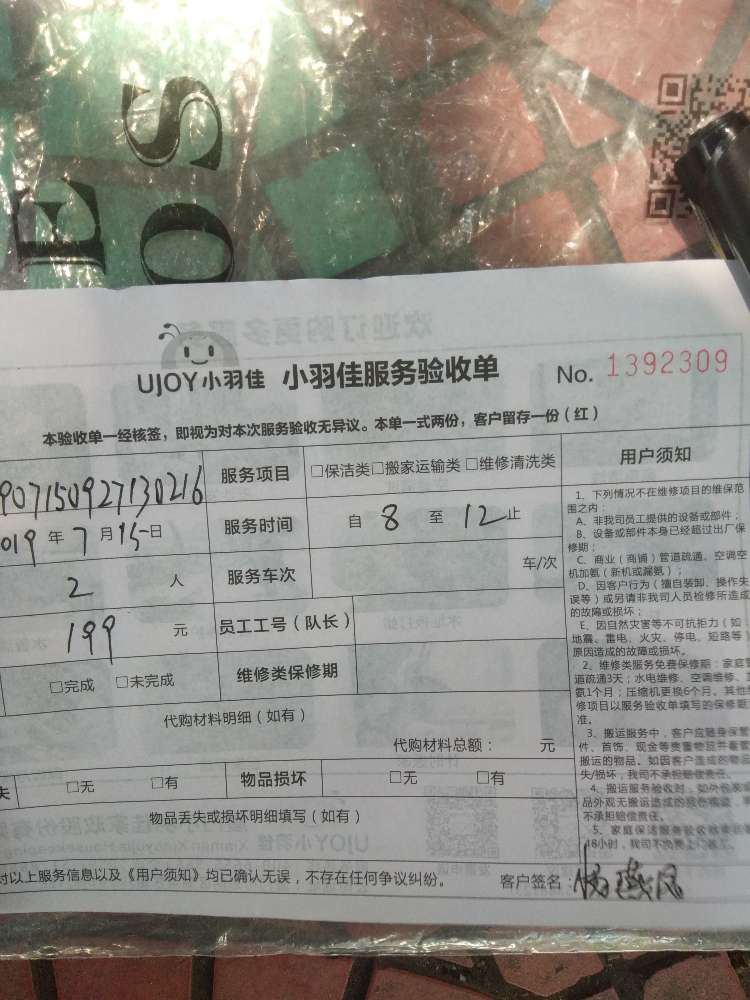 E
OS
UJOY小羽佳 小羽佳服务验收单 No. 1392309
本验收单一经核签，即视为对本次服务验收无异议。本单一式两份，客户留存一份（红）
907150927130216 服务项目 □保洁类□搬家运输类□维修清洗类 用户须知
019 年 7 月 15 日 服务时间 自 8 至 12 止
2 人 服务车次 车/次
199 元 员工工号（队长）
□完成 □未完成 维修类保修期
代购材料明细（如有）
代购材料总额： 元
失 □无 □有 物品损坏 □无 □有
物品丢失或损坏明细填写（如有）
对以上服务信息以及《用户须知》均已确认无误，不存在任何争议纠纷。 客户签名：
1、下列情况不在维修项目的维保范
围之内：
A、非我司员工提供的设备或部件；
B、设备或部件本身已经超过出厂保
修期；
C、商业（商铺）管道疏通、空调空
机加氨（新机或漏氨）；
D、因客户行为（擅自装卸、操作失
误等）或另请非我司人员检修所造成
的故障或损坏；
E、因自然灾害等不可抗拒力（如
地震、雷电、火灾、停电、短路等）
原因造成的故障或损坏。
2、维修类服务免费保修期：家庭管
道疏通3天；水电维修、空调维修、
氨1个月；压缩机更换6个月。其他
修项目以服务验收单填写的保修期
准。
3、搬运服务中，客户应随身保管
件、首饰、现金等贵重物品并看管
搬运的物品。如因客户造成的物品
失/损坏，我司不承担赔偿责任。
4、搬运服务验收时，如外包装
品外观无搬运造成的
不承担赔偿责任。
5、家庭保洁服务验收
48小时，我司不负责上门